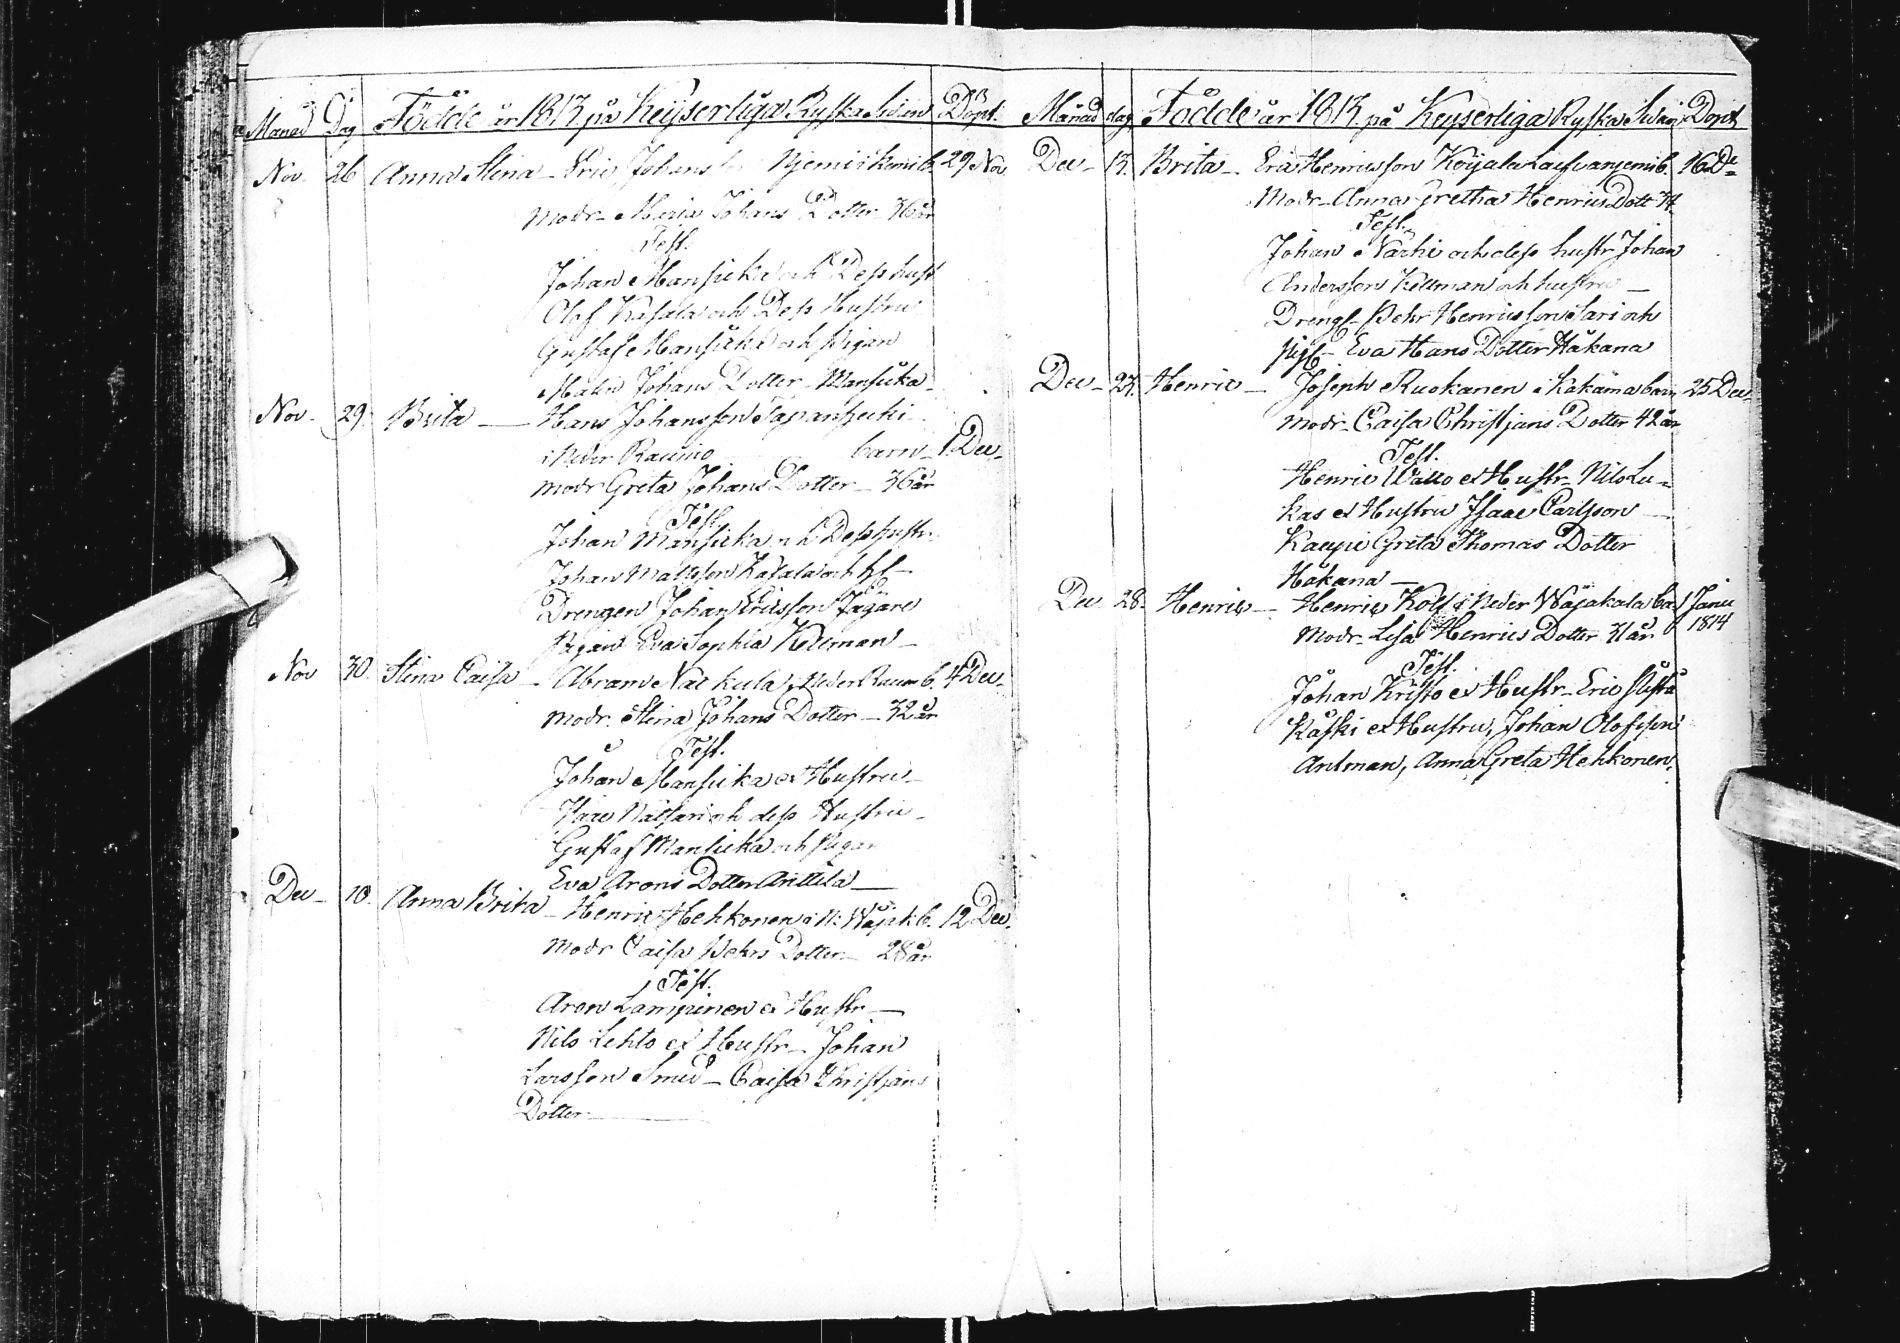 Månad Dag Födde år 1813 på Keyserliga Ryska Sidan Döpt.
Nov. 26 Anna Stina - Eric Johans Niemis kemi b. 29 Nov
Modr - Maria Johans Dotter 36 år
Test.
Johan Mansicka och Dess hust
Olof Kasala och Dess Hustru
Gustaf Mansicka och Pigan
Malin Johans Dotter - Mansicka -
Nov - 29. Brita - Hans Johansson Tapanisecki
i Neder Raumo barn - 1 Dec -
modr Greta Johans Dotter - 36 år
Test.
Johan Mansicka och Dess hustr.
Johan Mattsson Kasala och h -
Drengen Johan Ericsson Jägare
Pigan Eva Sophia Kellman -
Nov 30. Stina Caisa - Abram Nat kula i Neder Raum b. 4 Dec -
Modr. Stina Johans Dotter - 32 år
Test.
Johan Mansicka et Hustru -
Isaac Matsari och dess Hustru -
Gustaf Mansicka och Pigan
Eva Arons Dotter Anttila -
Dec - 10. Anna Brita - Henric Hehkonen i N: Wäjak b. 12 Dec.
Modr Caisa Pehrs Dotter - 28 år
Test.
Aron Lampinen et Hustr -
Nils Lehto et Hustr - Johan
Larsson Smed - Caisa Christjans
Dotter -
Månad dag Födde år 1813 på Keyserliga Ryska Sidan Döpt
Dec - 13. Brita - Eric Henricsson Koijala Laivaniemi b. 16 De -
Modr - Anna Gretha Henrics Dott 34
Test.
Johan Närhi och dess hustr Johan
Andersson Kellman och hustru -
Drengs - Pehr Henricsson Sari och
pig - Eva Hans Dotter Håkana
Dec - 23. Henric - Joseph Ruokanen i Kakama barn 25 Dec.
Modr - Caisa Christjans Dotter 42 år
Test.
Henric Wallo et Hustr - Nils Lu =
kas et Hustru Isaac Carlsson -
Kauppi Greta Thomas Dotter
Håkana -
Dec 28. Henric - Henric Kolf i Neder Wäjakala ba 1 Janu
Modr - Lisa Henrics Dotter 31 år. 1814
Test.
Johan Kristo et Hustr - Eric
Kaski et Hustru, Johan Olofsson
Antman, Anna Greta Hehkonen.